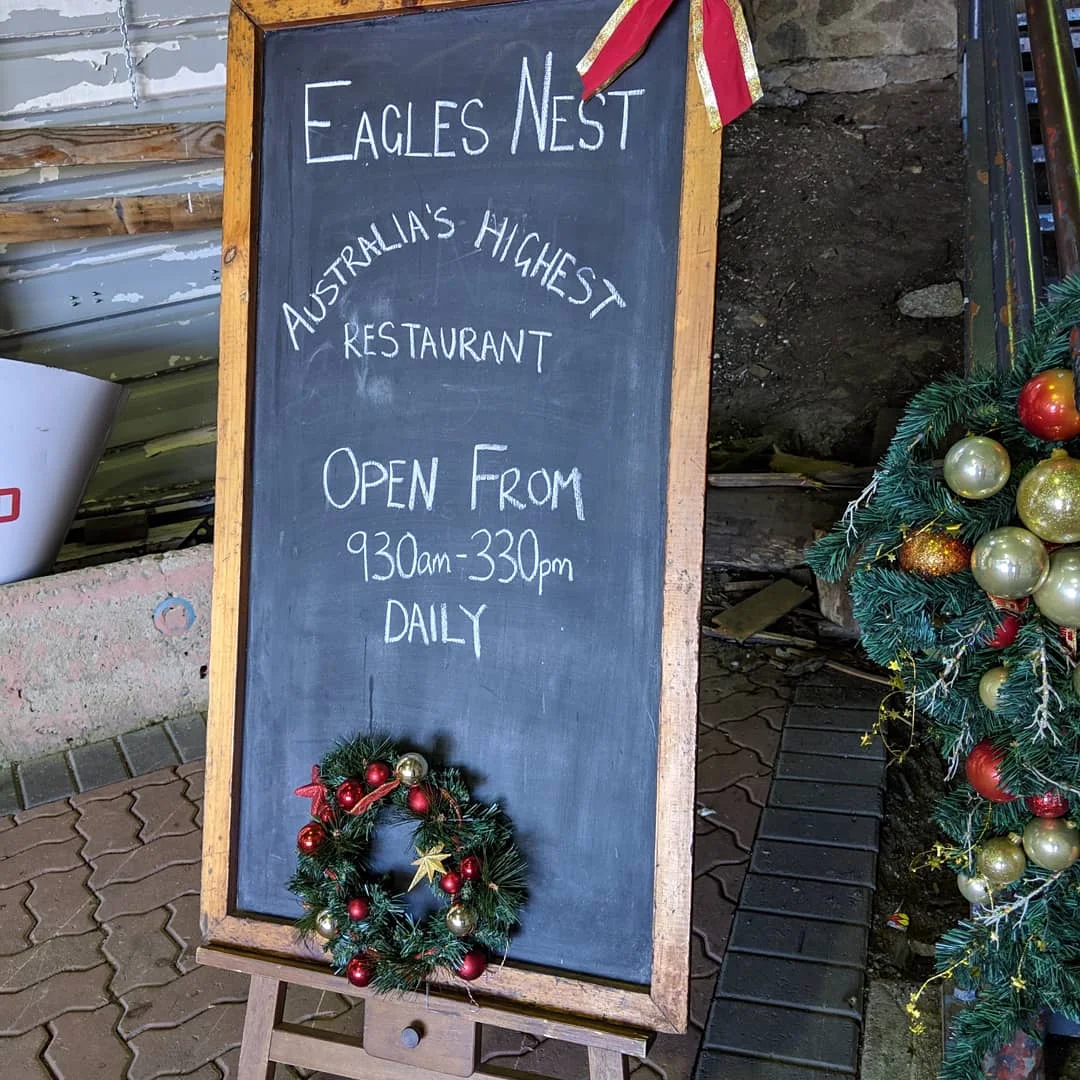 EAGLES NEST
AUSTRALIA'S HIGHEST
RESTAURANT
OPEN FROM
930am-330pm
DAILY